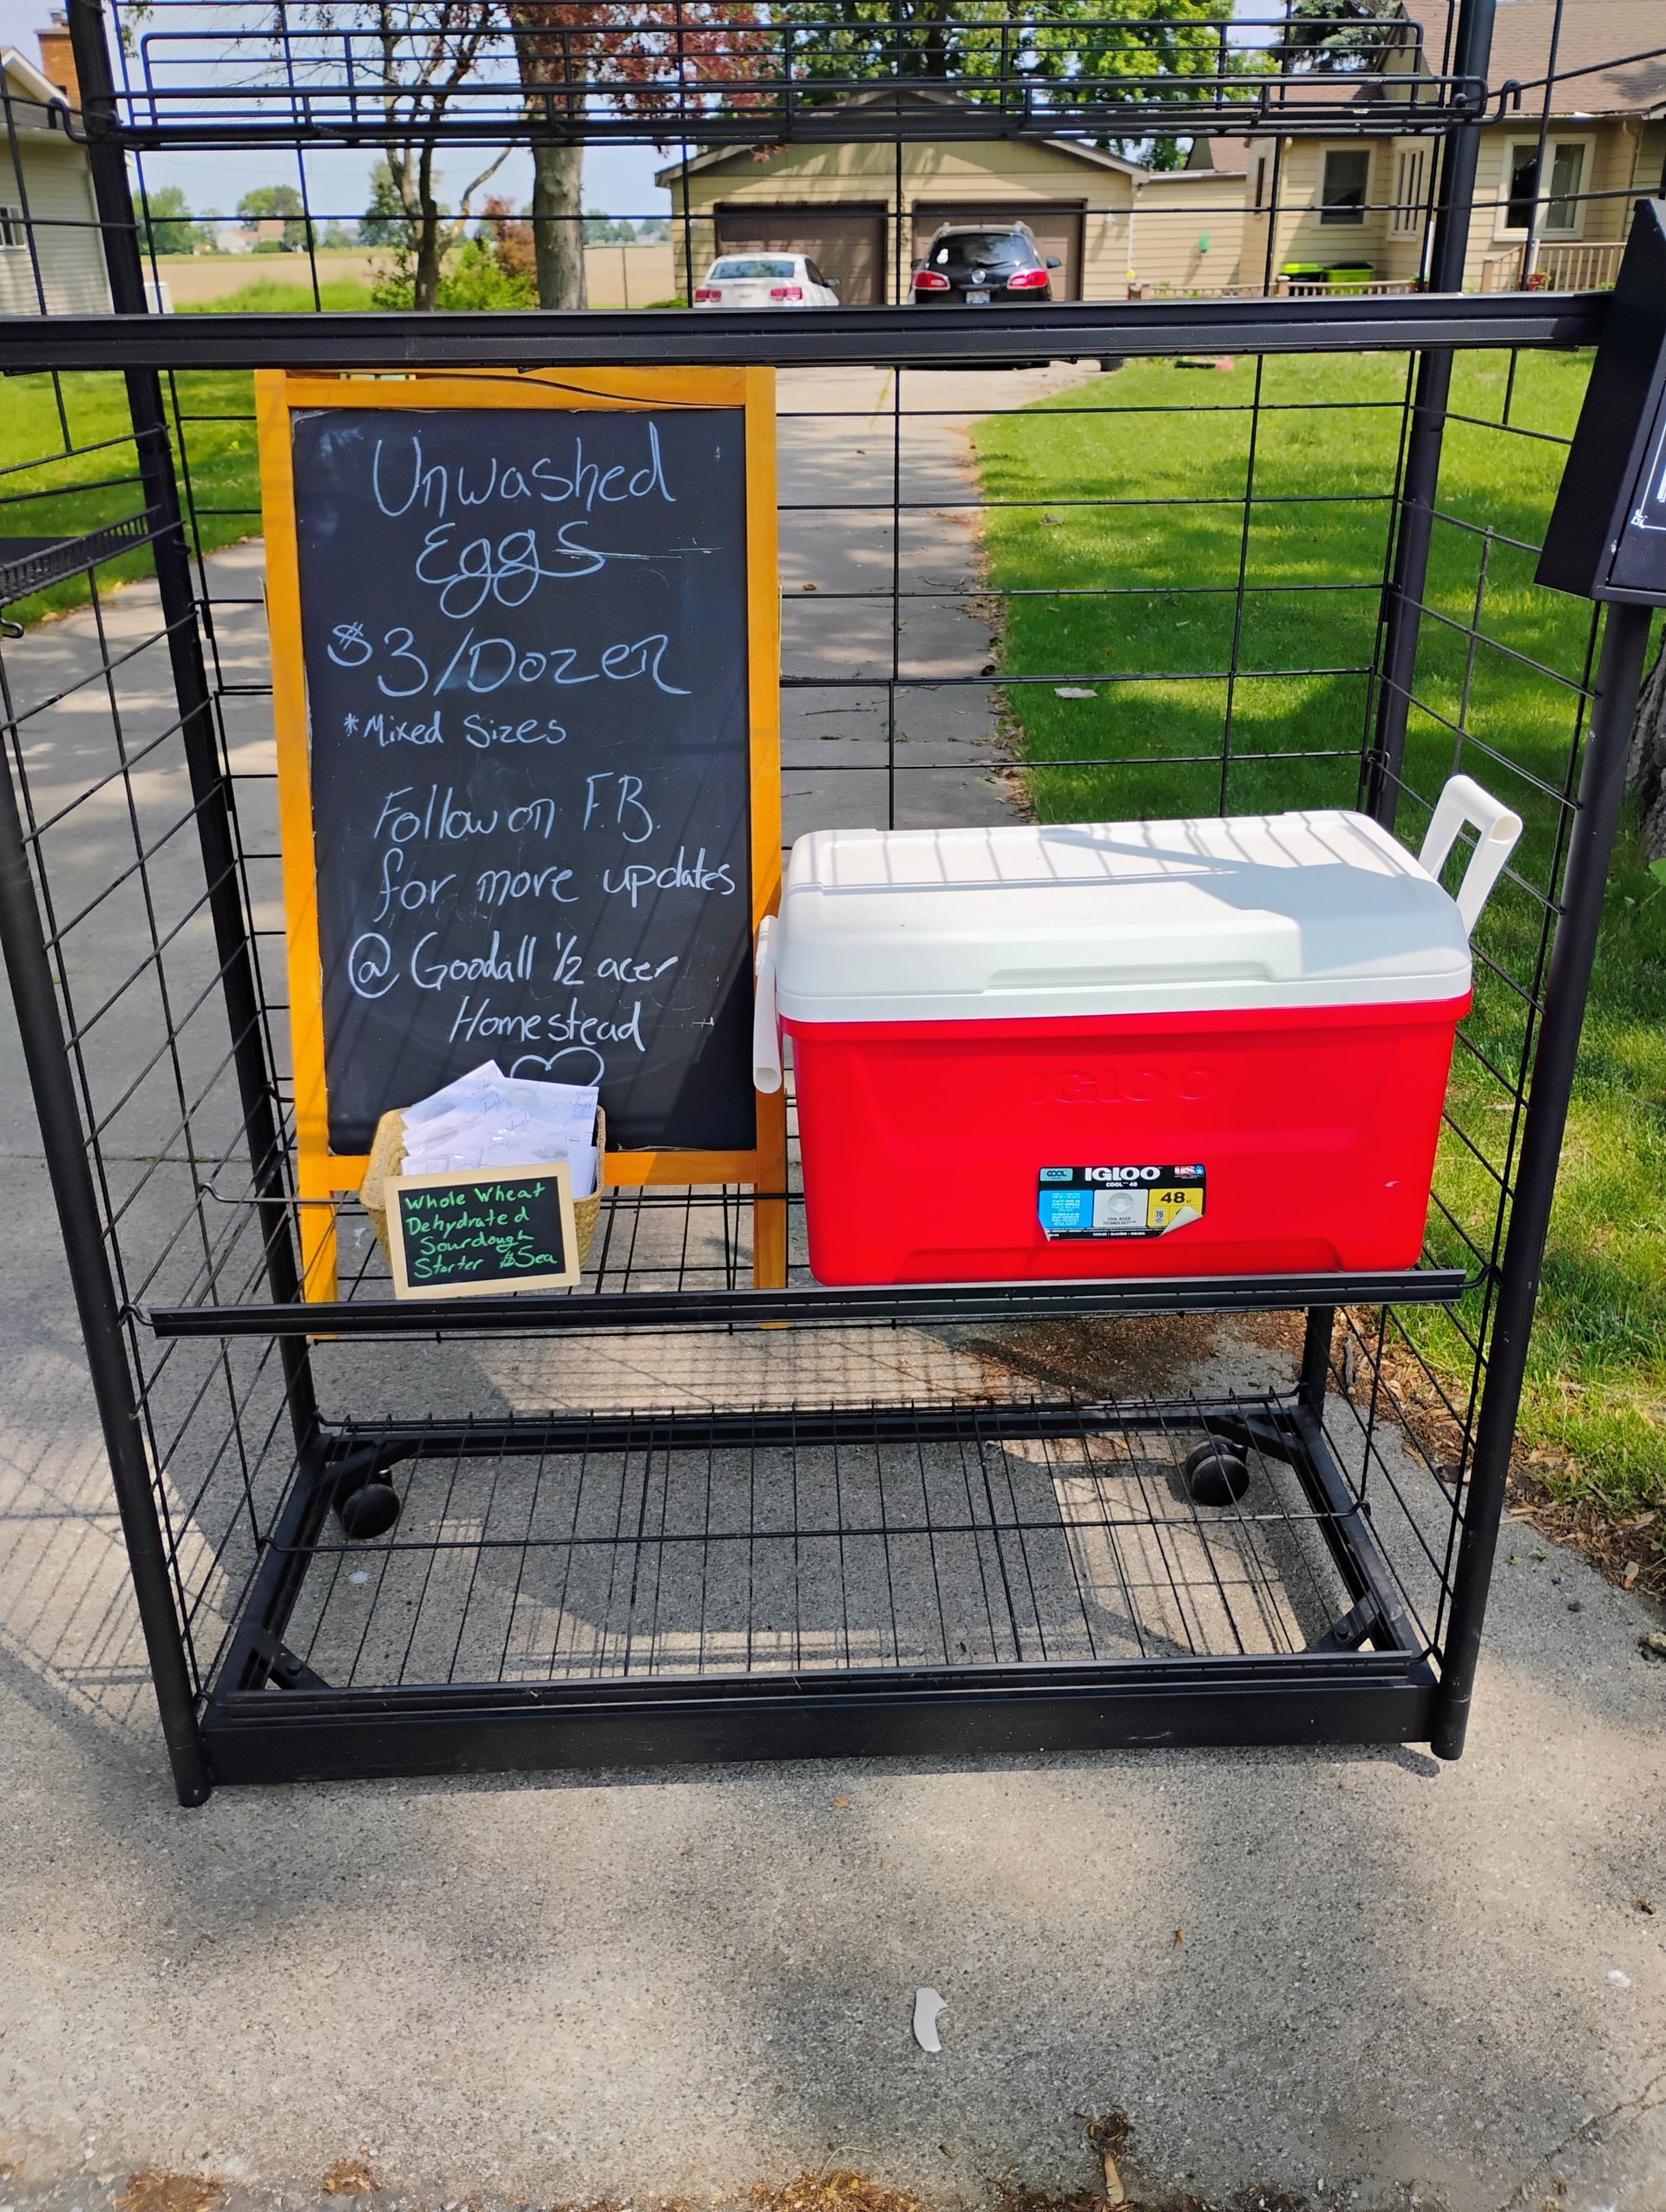 Unwashed
Eggs
$3/Dozen
*Mixed Sizes
Follow on F.B.
for more updates
@ Goodall 1/2 acer
Homestead
Whole Wheat
Dehydrated
Sourdough
Starter $5ea
IGLOO
COOL
IGLOO
COOL 48
48
76